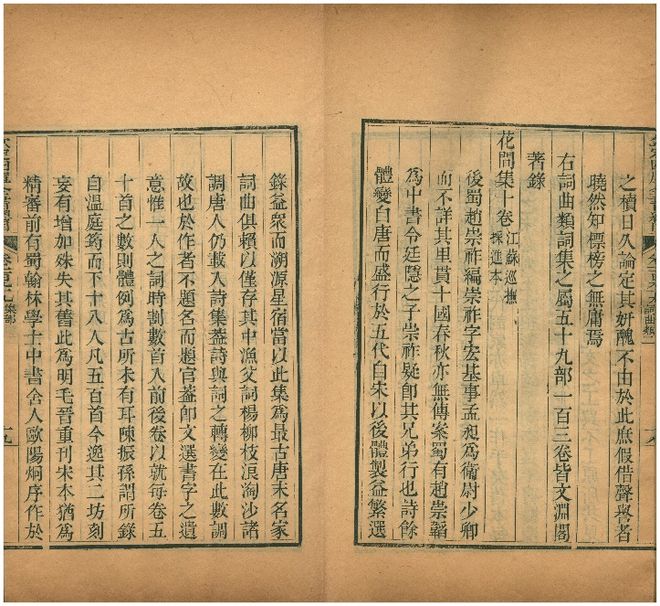 之積日久論定其妍醜不由於此庶假借聲譽者
曉然知標榜之無庸焉
右詞曲類詞集之屬五十九部一百三卷皆文淵閣
著錄
花間集十卷 江蘇巡撫
採進本
後蜀趙崇祚編崇祚字宏基事孟昶爲衛尉少卿
而不詳其里貫十國春秋亦無傳案蜀有趙崇韜
爲中書令廷隱之子崇祚疑卽其兄弟行也詩餘
體變自唐而盛行於五代自宋以後體製益繁選
錄益衆而溯源星宿當以此集爲最古唐末名家
詞曲俱賴以僅存其中漁父詞楊柳枝浪淘沙諸
調唐人仍載入詩集蓋詩與詞之轉變在此數調
故也於作者不題名而題官蓋卽文選書字之遺
意惟一人之詞時割數首入前後卷以就每卷五
十首之數則體例爲古所未有耳陳振孫謂所錄
自温庭筠而下十八人凡五百首今逸其二坊刻
妄有增加殊失其舊此爲明毛晉重刊宋本猶爲
精審前有蜀翰林學士中書舍人歐陽烱序作於